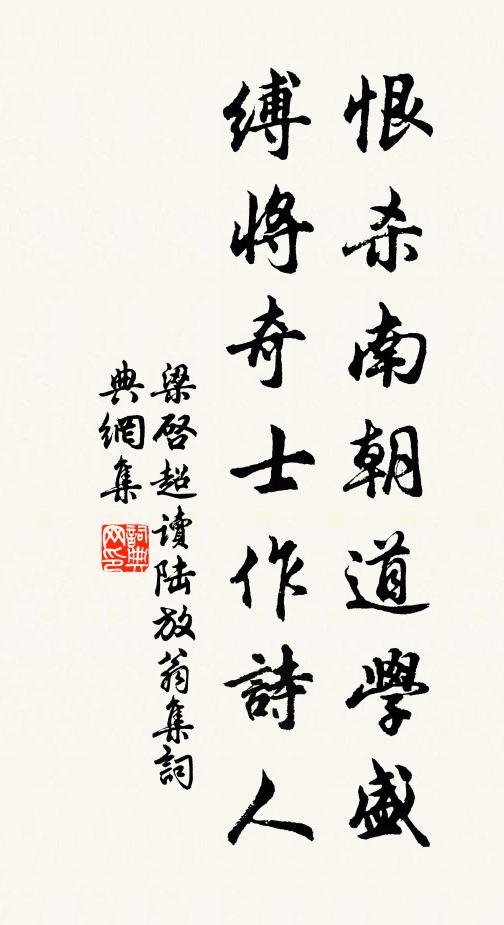 恨杀南朝道學盛
縛將奇士作詩人
梁啓超讀陸放翁集詞
典網集
詞典
网印